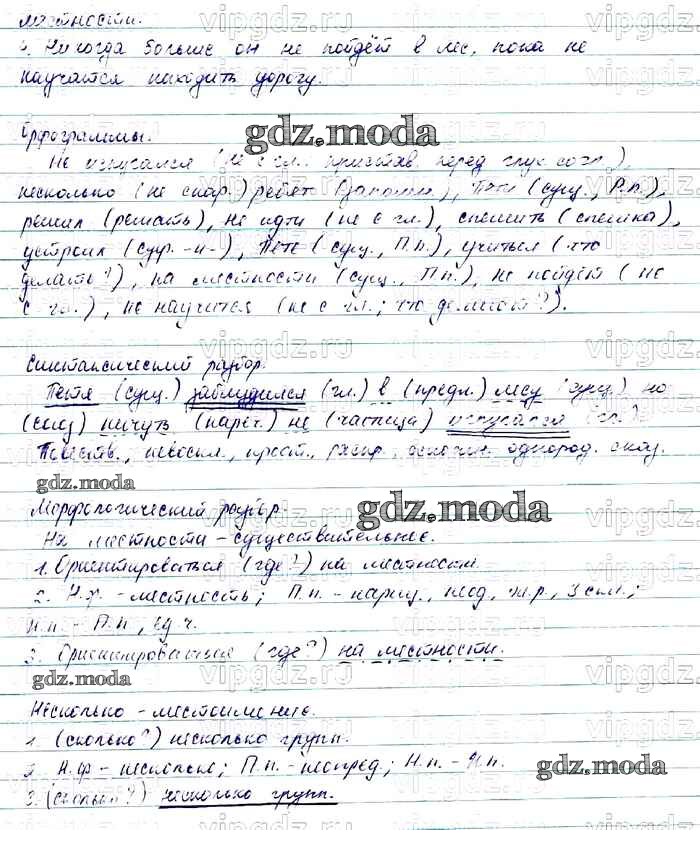 местности.
4. Никогда больше он не пойдёт в лес, пока не
научится находить дорогу.
Орфограммы.
gdz.moda
Не испугался (не с гл., пристав. перед глух. согл.),
несколько (не снар.) ребят (запомн.), Пети (сущ., Р.п.),
решил (решать), не идти (не с гл.), спешить (спешка),
устроил (суф. -и-), Пете (сущ., П.п.), учиться (что
делать?), на местности (сущ., П.п.), не пойдёт (не
с гл.), не научится (не с гл.; что делают?).
Синтаксический разбор.
Петя (сущ.) заблудился (гл.) в (предл.) лесу (сущ.) но
(союз) ничуть (нареч.) не (частица) испугался (гл.)
Повеств., невоскл., прост., распр., осложнен. однород. сказ.
gdz.moda
Морфологический разбор.
gdz.moda
На местности - существительное.
1. Ориентироваться (где?) на местности.
2. Н.ф. - местность; П.п. - нариц., неод., ж.р., 3 скл.;
Н.п. - П.п., ед.ч.
3. Ориентироваться (где?) на местности.
gdz.moda
Несколько - местоимение.
1. (сколько?) несколько групп.
2. Н.ф - несколько; П.п. - неопред.; Н.п. - И.п.
gdz.moda
3. (сколько?) несколько групп.
vipgdz.ru